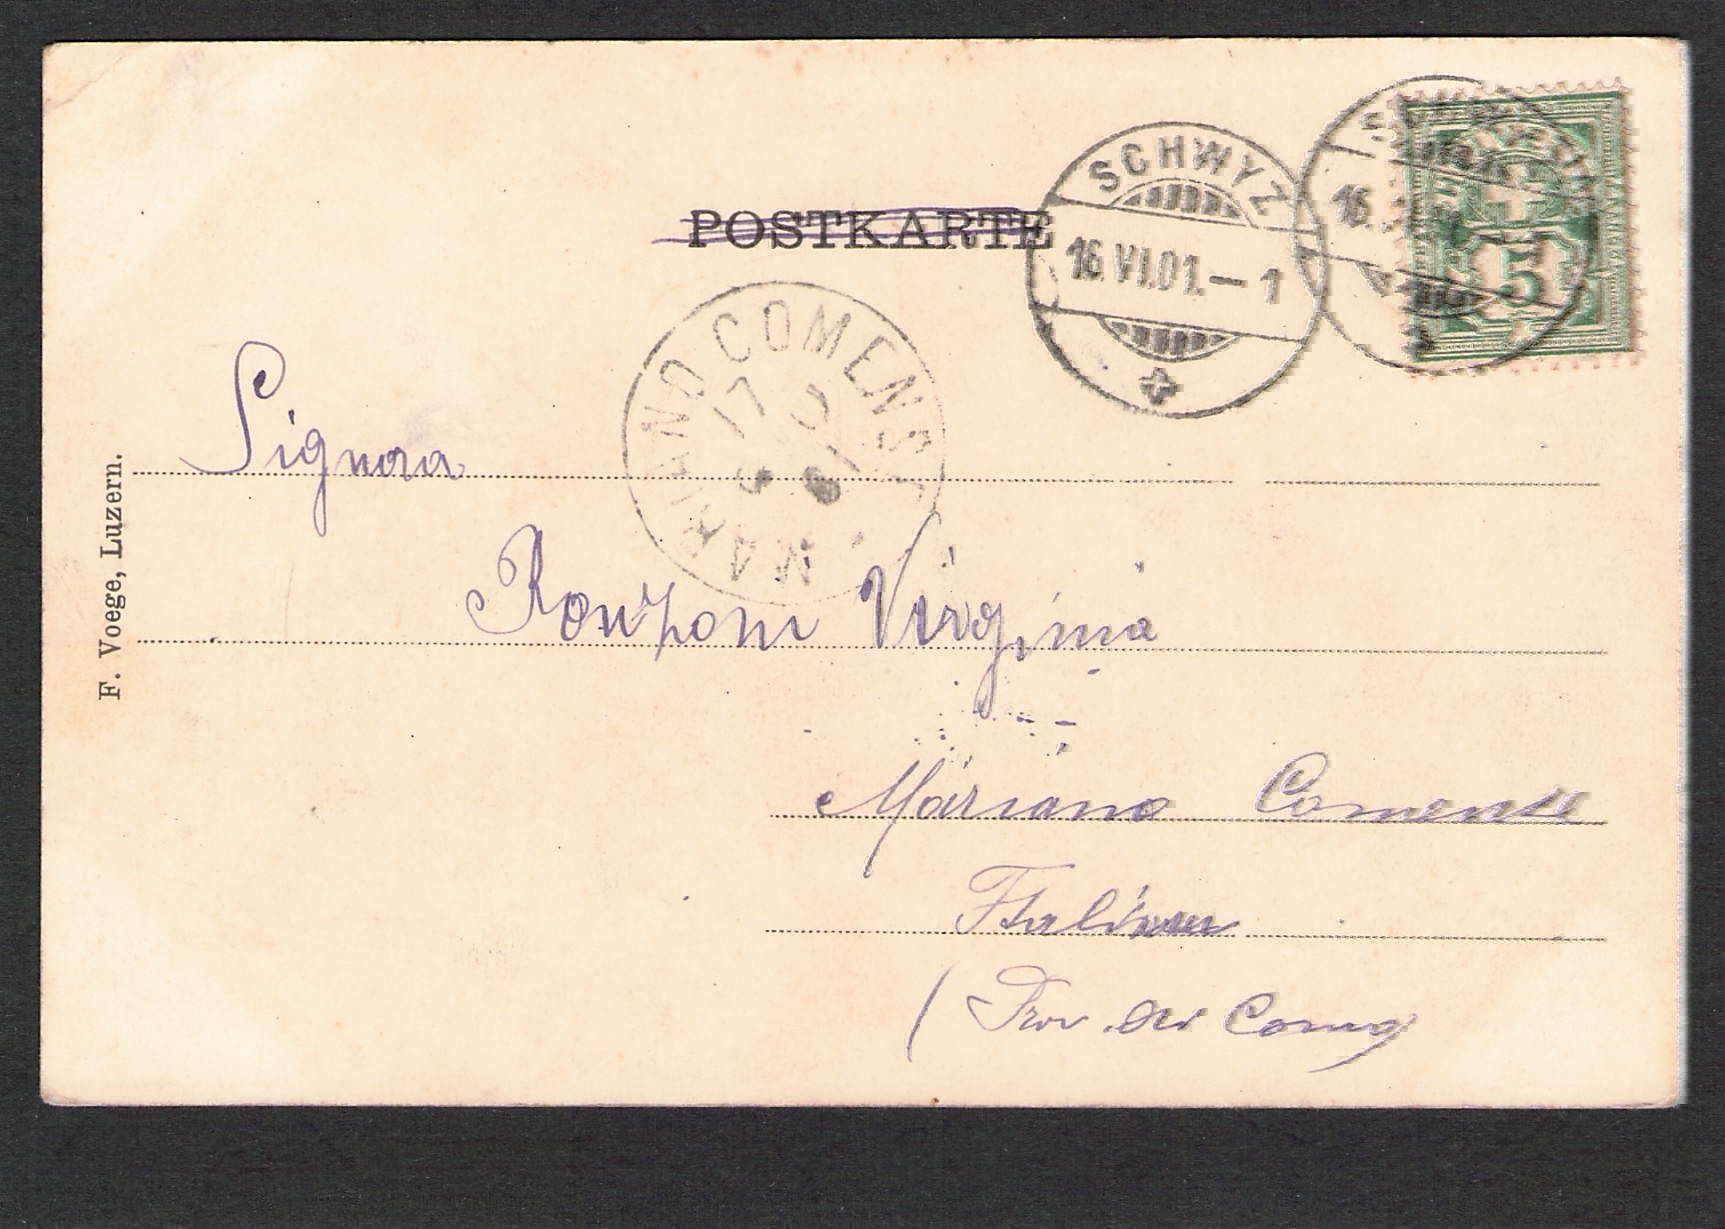 POSTKARTE
SCHWYZ
16.VI.01.–1
16.
5
MARIANO COMENSE
17
Signora
Ronzoni Virginia
Mariano Comense
Italien
(Prov. di Como)
F. Voege, Luzern.